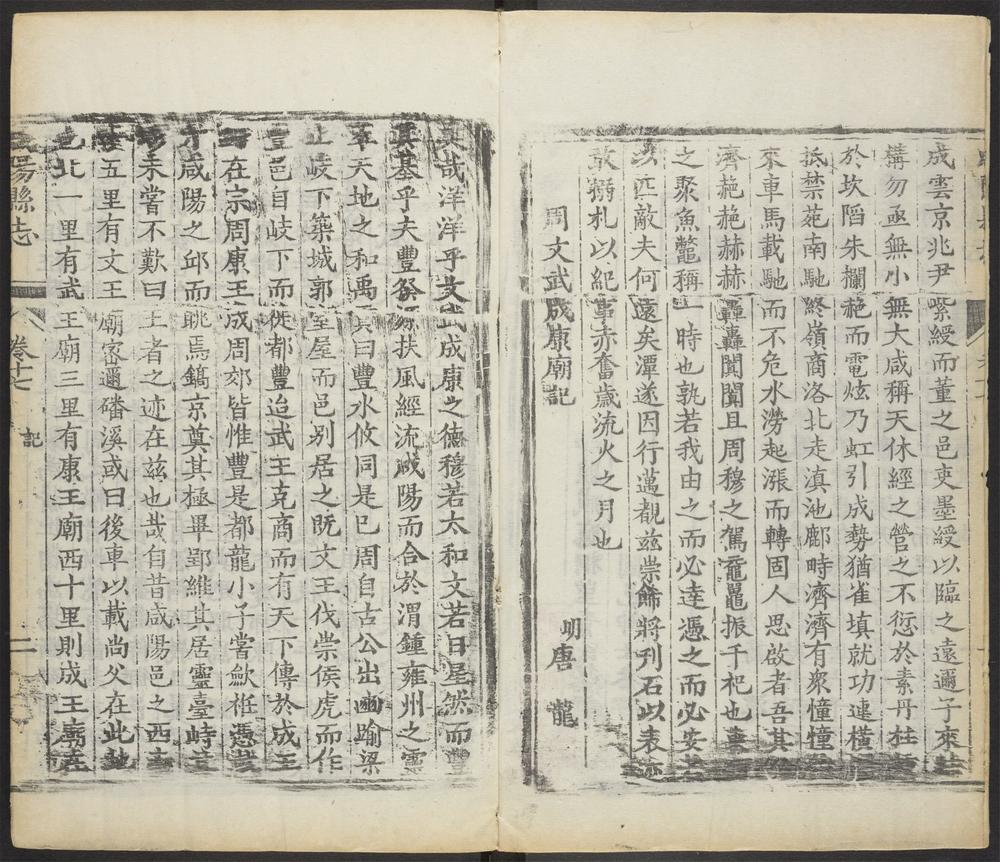 成雲京兆尹縈綬而董之邑吏墨綬以臨之遠邇子來
構勿亟無小無大咸稱天休經之營之不愆於素丹柱
於坎陷朱欄䒱而電炫乃虹引成勢猶雀填就功連橫
抵禁苑南馳終嶺商洛北走滇池鄜畤濟濟有衆憧憧
來車馬載馳而不危水澇起漲而轉固人思啟者吾其
濟䒱䒱赫赫轟轟闐闐且周穆之駕黿鼉振千祀也
之聚魚鼈稱一時也孰若我由之而必達憑之而必安
以匹敵夫何遠矣潭遂因行邁覩兹崇飾將刋石以表
敢搦札以紀事赤奮歲流火之月也
周文武成康廟記
明唐龍
哉洋洋乎文武成康之德穆若太和文若日星然而豐
基乎夫豐發源扶風經流咸陽而合於渭鍾雍州之靈
萃天地之和禹貢曰豐水攸同是已周自古公出豳踰梁
止岐下築城郭室屋而邑别居之旣文王伐崇侯虎而作
豐邑自岐下而徙都豐迨武王克商而有天下傳於成王
在宗周康王成周郊皆惟豐是都龍小子嘗歛袵憑
咸陽之邱而眺焉鎬京奠其極畢郢維其居靈臺峙
未嘗不歎曰王者之迹在兹也哉自昔咸陽邑之西
五里有文王廟密邇磻溪或曰後車以載尚父在此
北一里有武王廟三里有康王廟西十里則成王廟在
陽縣志
卷十七
記
二